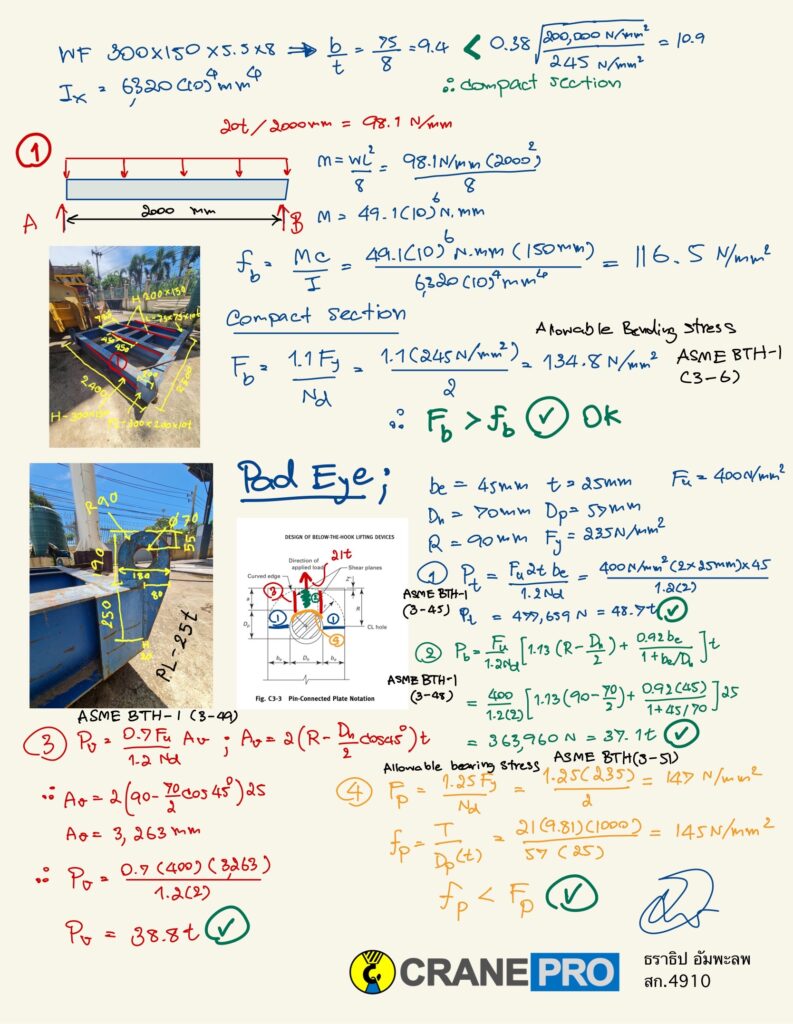 WF 300×150×5.5×8 ⇒ b/t = 75/8 = 9.4 < 0.38 √(200,000 N/mm² / 245 N/mm²) = 10.9
Ix = 6320(10)⁴ mm⁴
∴ compact section
20t / 2000mm = 98.1 N/mm
①
A
2000 mm
B
M = WL²/8 = 98.1N/mm (2000)²/8
M = 49.1(10)⁶ N.mm
fb = MC/I = 49.1(10)⁶ N.mm (150mm) / 6320(10)⁴ mm⁴ = 116.5 N/mm²
Compact section
Allowable Bending stress
Fb = 1.1 Fy/Nd = 1.1(245N/mm²)/2 = 134.8 N/mm²
ASME BTH-1
(3-6)
∴ Fb > fb ✓ OK
H-200×150
2400
H-300×150
Pad Eye;
be = 45mm t = 25mm Fu = 400N/mm²
Dh = 70mm Dp = 57mm
R = 90mm Fy = 235N/mm²
R90
70
55
90
180
80
250
PL-25t
DESIGN OF BELOW-THE-HOOK LIFTING DEVICES
21t
Direction of
applied load
Shear planes
Curved edge
Z'
③
②
a
R
①
①
Dp
CL hole
④
be
Dh
be
Fig. C3-3 Pin-Connected Plate Notation
① Pt = Fu 2t be / 1.2Nd = 400N/mm²(2×25mm)×45 / 1.2(2)
ASME BTH-1
(3-45)
Pt = 477,659 N = 48.7t ✓
② Pb = Fu/1.2Nd [1.13 (R - Dh/2) + 0.92be / 1+be/Dh] t
ASME BTH-1
(3-48)
= 400/1.2(2) [1.13(90-70/2) + 0.92(45) / 1+45/70] 25
= 363,960 N = 37.1t ✓
ASME BTH-1 (3-49)
③ Pv = 0.7Fu/1.2 Nd Av ; Av = 2(R - Dh/2 cos45°) t
∴ Av = 2(90-70/2 cos45°) 25
Av = 3,263 mm
∴ Pv = 0.7 (400) (3,263) / 1.2(2)
Pv = 38.8t ✓
Allowable bearing stress ASME BTH(3-51)
④ Fp = 1.25Fy/Nd = 1.25(235)/2 = 147 N/mm²
fp = T/Dp(t) = 21(9.81)(1000) / 57(25) = 145N/mm²
fp < Fp ✓
CRANE PRO
ธราธิป อัมพะลพ
สก.4910